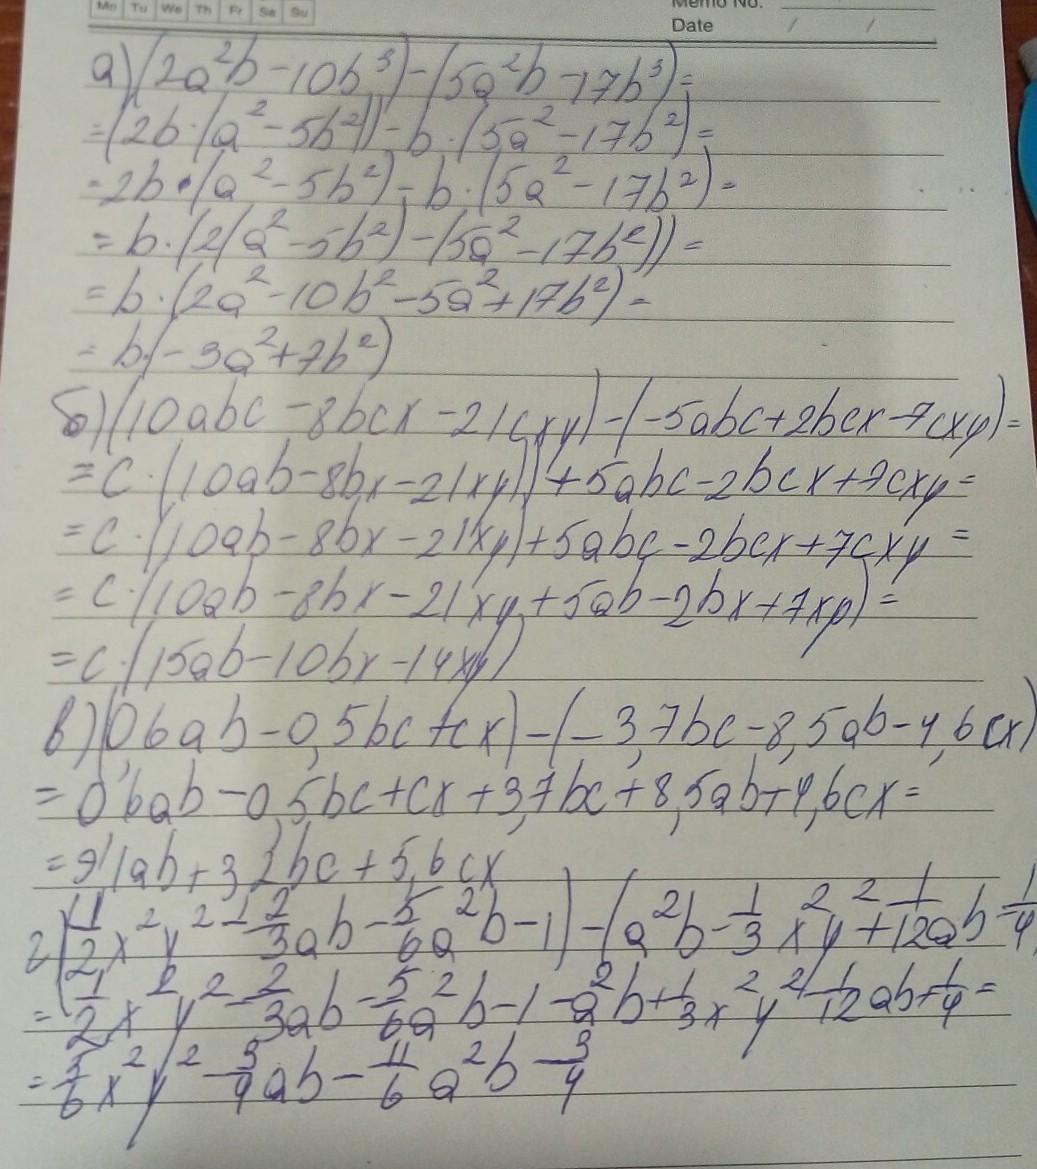 Mo Tu We Th Fr Sa Su
Memo No.
Date / /
а) (2a²b - 10b³) - (5a²b - 17b³) =
= (2b · (a² - 5b²)) - b · (5a² - 17b²) =
= 2b · (a² - 5b²) - b · (5a² - 17b²) =
= b · (2(a² - 5b²) - (5a² - 17b²)) =
= b · (2a² - 10b² - 5a² + 17b²) =
= b · (-3a² + 7b²)
б) (10abc - 8bcx - 21cxy) - (-5abc + 2bcx - 7cxy) =
= c · (10ab - 8bx - 21xy)) + 5abc - 2bcx + 7cxy =
= c · (10ab - 8bx - 21xy) + 5abc - 2bcx + 7cxy =
= c · (10ab - 8bx - 21xy + 5ab - 2bx + 7xy) =
= c · (15ab - 10bx - 14xy)
в) (0,6ab - 0,5bc + cx) - (-3,7bc - 8,5ab - 4,6cx)
= 0,6ab - 0,5bc + cx + 3,7bc + 8,5ab + 4,6cx =
= 9,1ab + 3,2bc + 5,6cx
г) (1/2x²y² - 2/3ab - 5/6a²b - 1) - (a²b - 1/3x²y² + 1/12ab - 1/4
= 1/2x²y² - 2/3ab - 5/6a²b - 1 - a²b + 1/3x²y² - 1/12ab + 1/4 =
= 5/6x²y² - 3/4ab - 11/6a²b - 3/4